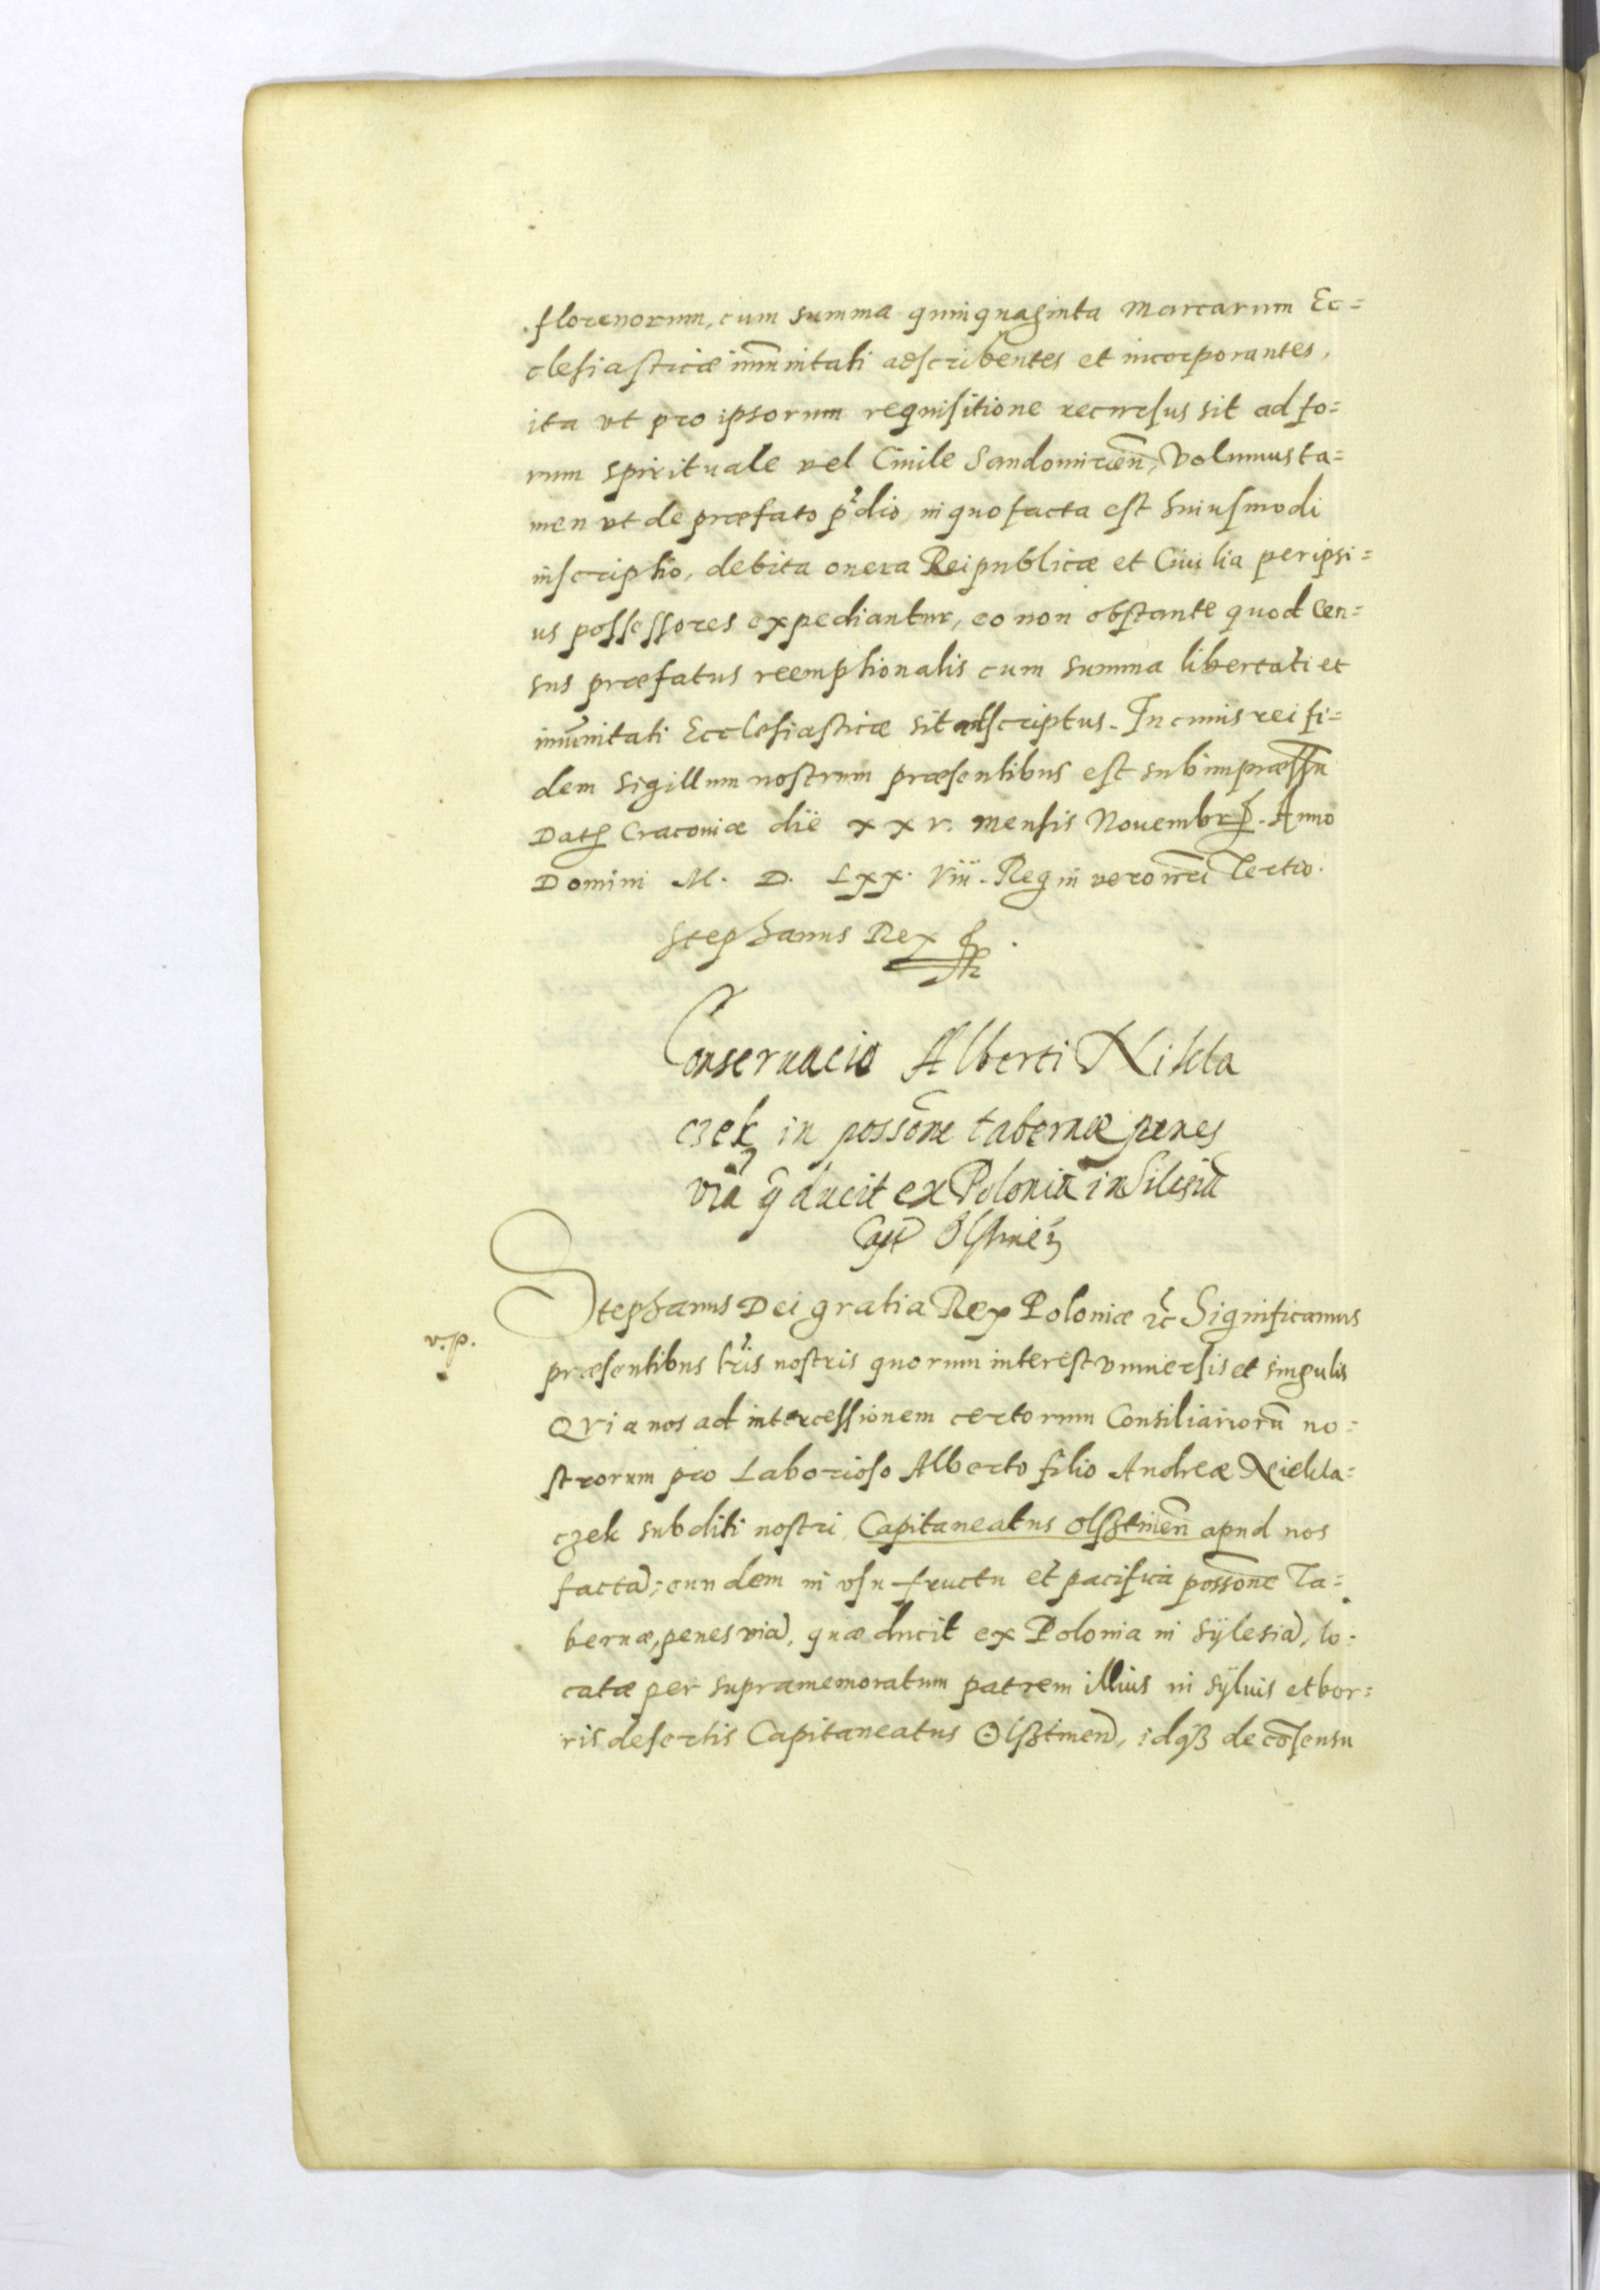 florenorum, cum summa quinquaginta Marcarum Ec=
clesiasticæ im̄unitati adscribentes et incorporantes,
ita vt pro ipsorum requisitione recursus sit ad fo=
rum spirituale vel Ciuile Sandomirien̄, Volumus ta=
men vt de præfato p̃dio, in quo facta est huiusmodi
inscriptio, debita onera Reipublicæ et Ciuilia per ipsi=
us possessores expediantur, eo non obstante quod Cen=
sus præfatus reemptionalis cum summa libertati et
imūnitati Ecclesiasticæ sit adscriptus. In cuius rei fi=
dem sigillum nostrum præsentibus est subimpræssu
Dat Cracouiæ die xxv. mensis Nouembr. Anno
Domini M. D. Lxx. viii. Regni vero nr̄i Tertio.
Stephanus Rex
Conseruacio Alberti Nikla
czek in possōne tabernæ penes
viā q̄ ducit ex Poloniā in Silesiā
Capt Olstinen
Stephanus Dei gratia Rex Poloniæ etc̄ Significamus
v.p.
præsentibus lr̃is nostris quorum interest vniuersis et singulis
Qvia nos ad intercessionem certorum Consiliariorū no=
strorum pro Laborioso Alberto filio Andreæ Niekla=
czek subditi nostri Capitaneatus Olsztinen̄ apud nos
factā; eundem in vsu fructu et pacifica possōne Ta=
bernæ, penes viā, quæ ducit ex Polonia in Sÿlesiā, lo=
catæ per supramemoratum patrem illius in sÿluis et bor=
ris desertis Capitaneatus Olsztinen̄, idq̃ de cōsensu